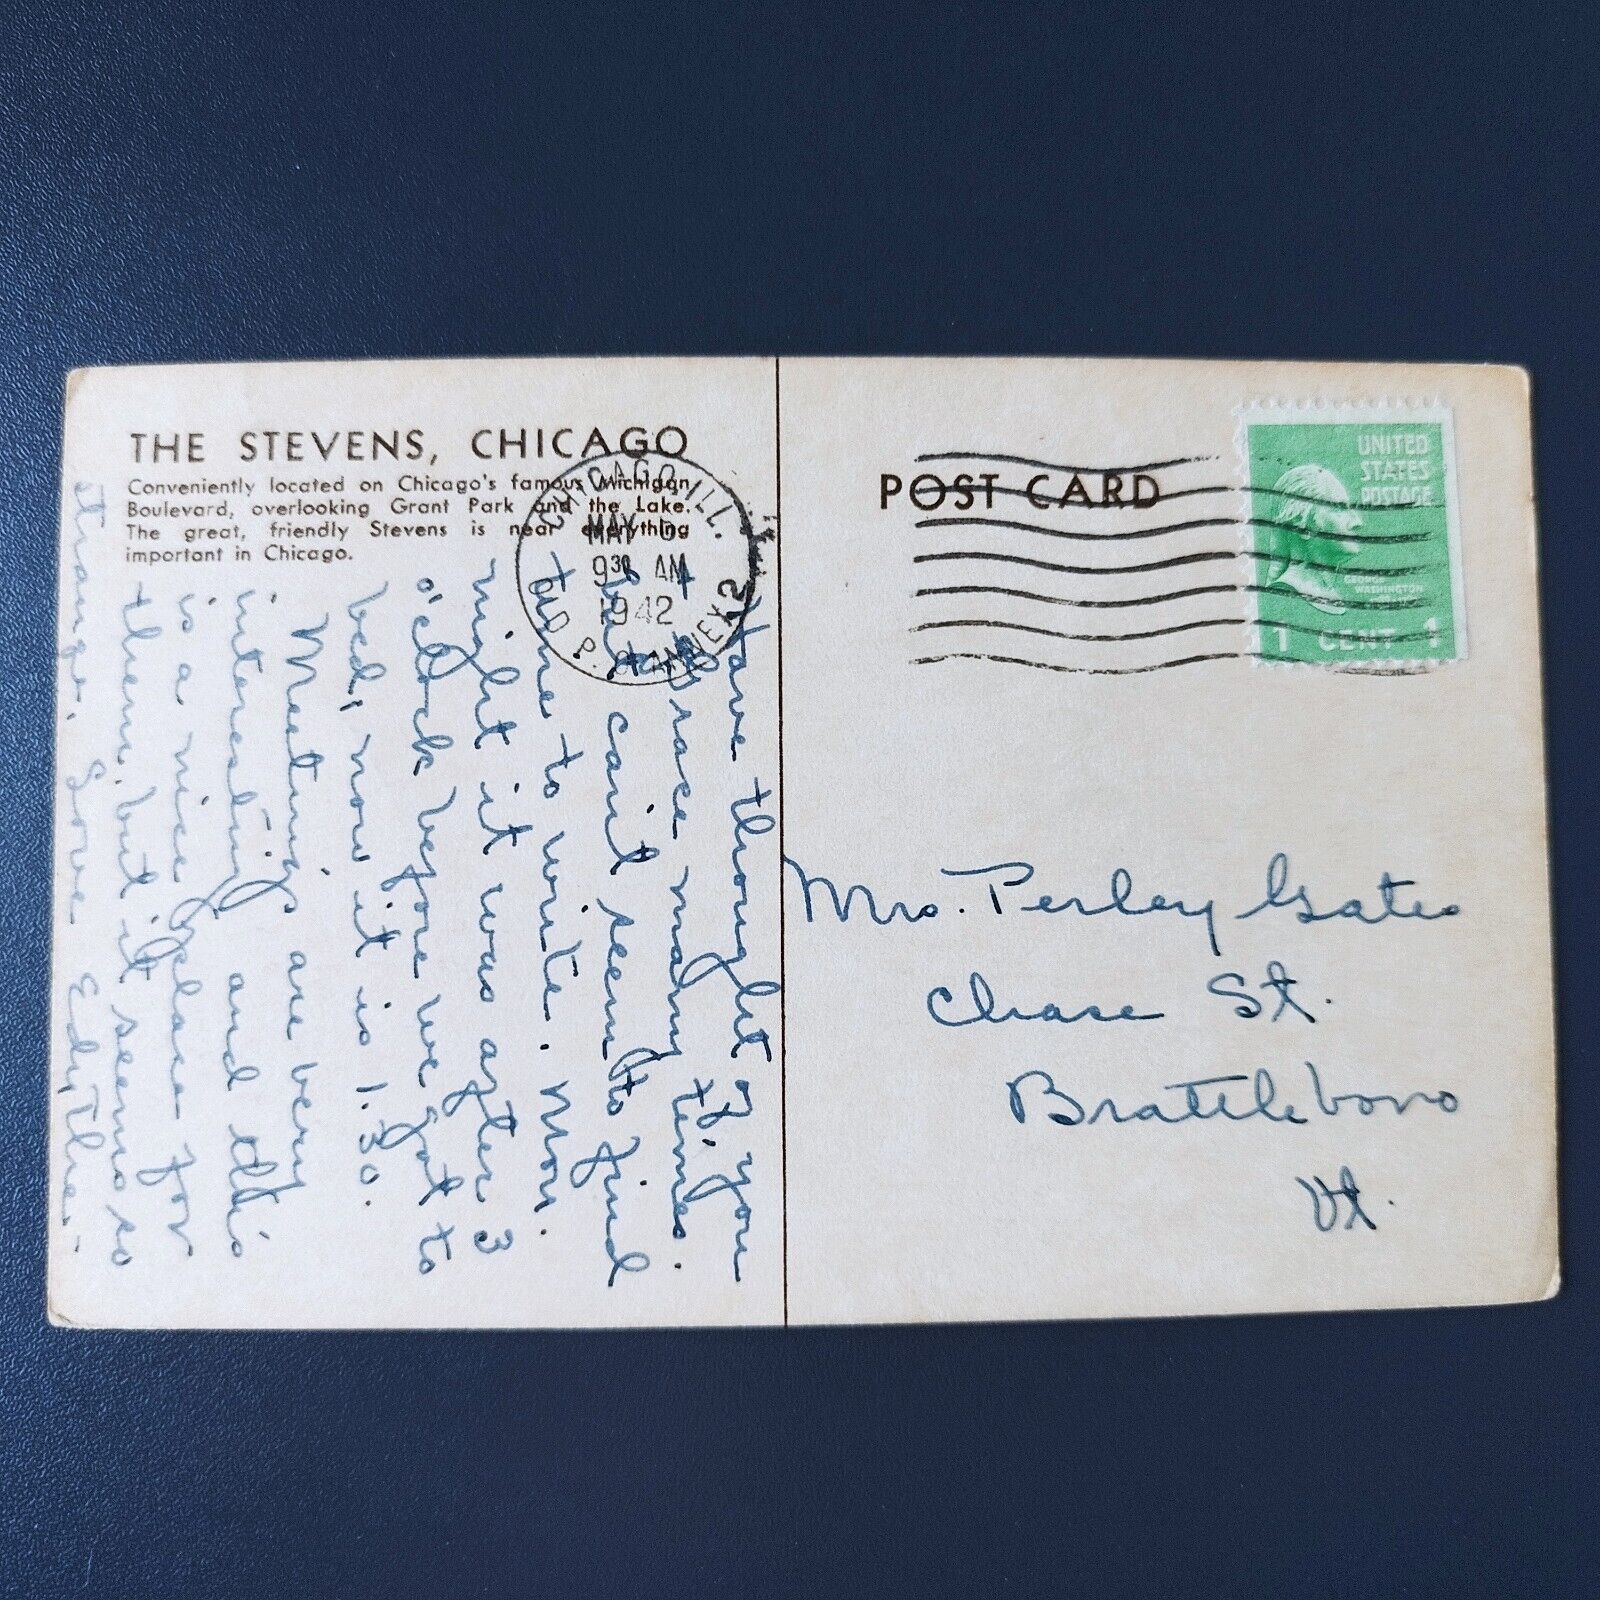 THE STEVENS, CHICAGO
Conveniently located on Chicago's famous Michigan
Boulevard, overlooking Grant Park and the Lake.
The great, friendly Stevens is near everything
important in Chicago.
CHICAGO, ILL.
MAY
9 30 AM
1942
ANNEX 2
Have thought of you
& Grace many times.
but can't seem to find
time to write. Mon.
night it was after 3
o'clock before we got to
bed, now it is 1.30.
Meetings are very
interesting and this
is a nice place for
them, but it seems so
strange. Love Edythe.
POST CARD
UNITED
STATES
POSTAGE
GEORGE
WASHINGTON
1 CENT 1
Mrs. Perley Gates
Chase St.
Brattleboro
Vt.